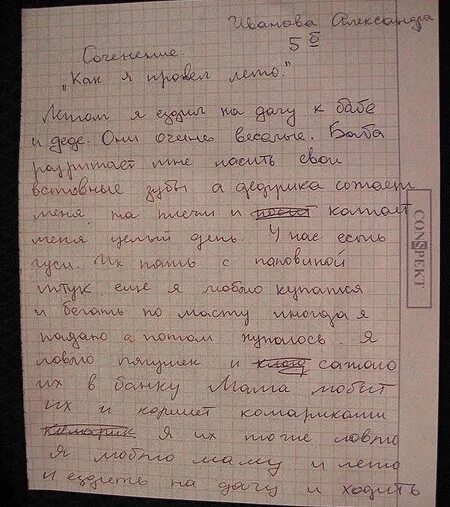 Иванова Александра
5 б
Соченение.
"Как я провел лето."
Летом я ездил на дачу к бабе
и деде. Они очень веселые. Баба
разришает мне носить свои
вставные зубы а дедушка сожает
меня на плечи и катает
меня целый день. У нас есть
гуси. Их пять с паловиной
штук еще я люблю купатся
и бегать по масту иногда я
падаю а потом купаюсь. Я
ловлю лягушек и сажаю
их в банку Мама любит
их и кормит комариками
Я их тоже ловлю
Я люблю маму и лето
и ездить на дачу и ходить
CONSPEKT